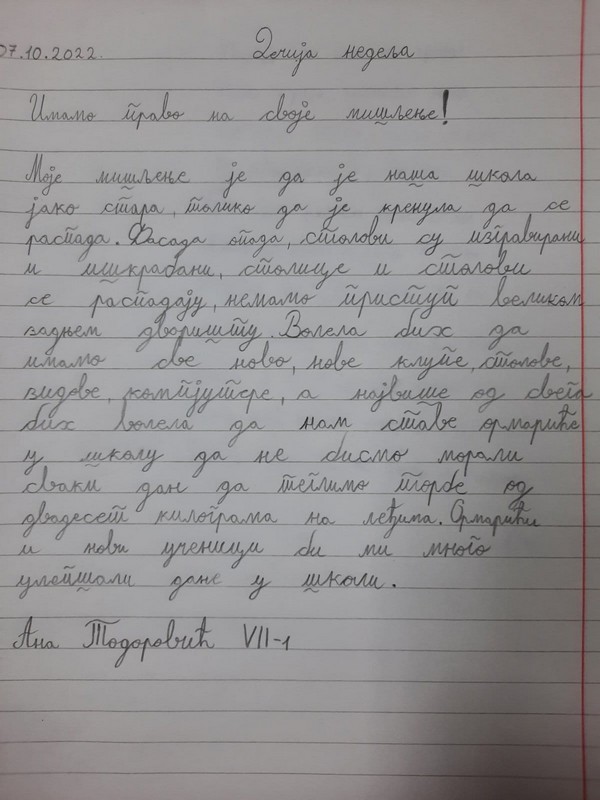 07.10.2022. Дечија недеља
Имамо право на своје мишљење!
Моје мишљење је да је наша школа
јако стара, толико да је кренула да се
распада. Фасада опада, столови су изгравирани
и ишкрабани, столице и столови
се распадају, немамо приступ великом
задњем дворишту. Волела бих да
имамо све ново, нове клупе, столове,
зидове, компјутере, а највише од свега
бих волела да нам ставе ормариће
у школу да не бисмо морали
сваки дан да теглимо торбе од
двадесет килограма на леђима. Ормарићи
и нови ученици би ми много
улепшали дане у школи.
Ана Тодоровић VII-1